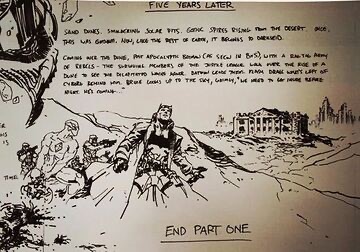 FIVE YEARS LATER
SAND DUNES. SMOLDERING SOLAR PITS. GOTHIC SPIRES RISING FROM THE DESERT. ONCE,
THIS WAS GOTHAM. NOW, LIKE THE REST OF EARTH, IT BELONGS TO DARKSEID.
COMING OVER THE DUNE, POST APOCALYPTIC BATMAN (AS SEEN IN BVS), WITH A RAGTAG ARMY
OF REBELS - THE SURVIVING MEMBERS OF THE JUSTICE LEAGUE. WALK OVER THE RISE OF A
DUNE TO SEE THE DECAPITATED WAYNE MANOR. BATMAN LEADS THEM. FLASH DRAGS WHAT'S LEFT OF
CYBORG BEHIND HIM. BRUCE LOOKS UP TO THE SKY, GRIMLY, "WE NEED TO GET INSIDE BEFORE
NIGHT. HE'S COMING..."
TIME
END PART ONE